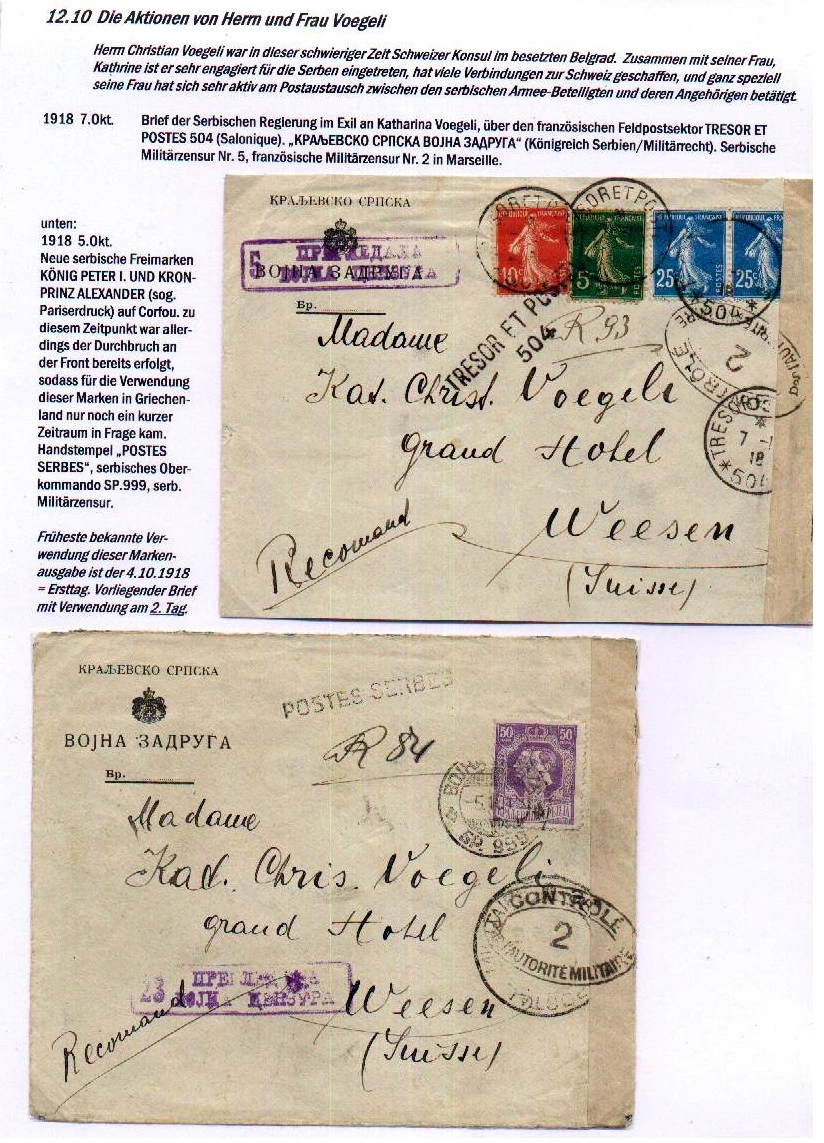 12.10 Die Aktionen von Herrn und Frau Voegeli
Herrn Christian Voegeli war in dieser schwieriger Zeit Schweizer Konsul im besetzten Belgrad. Zusammen mit seiner Frau,
Kathrine ist er sehr engagiert für die Serben eingetreten, hat viele Verbindungen zur Schweiz geschaffen, und ganz speziell
seine Frau hat sich sehr aktiv am Postaustausch zwischen den serbischen Armee-Beteiligten und deren Angehörigen betätigt.
1918 7.Okt. Brief der Serbischen Regierung im Exil an Katharina Voegeli, über den französischen Feldpostsektor TRESOR ET
POSTES 504 (Salonique). „КРАЉЕВСКО СРПСКА ВОЈНА ЗАДРУГА“ (Königreich Serbien/Militärrecht). Serbische
Militärzensur Nr. 5, französische Militärzensur Nr. 2 in Marseille.
unten:
1918 5.Okt.
Neue serbische Freimarken
KÖNIG PETER I. UND KRON-
PRINZ ALEXANDER (sog.
Pariserdruck) auf Corfou. zu
diesem Zeitpunkt war aller-
dings der Durchbruch an
der Front bereits erfolgt,
sodass für die Verwendung
dieser Marken in Griechen-
land nur noch ein kurzer
Zeitraum in Frage kam.
Handstempel „POSTES
SERBES“, serbisches Ober-
kommando SP.999, serb.
Militärzensur.
Früheste bekannte Ver-
wendung dieser Marken-
ausgabe ist der 4.10.1918
= Ersttag. Vorliegender Brief
mit Verwendung am 2. Tag.
КРАЉЕВСКО СРПСКА
5
ВОЈНА ЗАДРУГА
Бр.
10c
5c
25c
25c
POSTES
TRESOR ET POSTES
504
R 93
CONTRÔLE
2
TRESOR
7
18
504
Madame
Kat. Christ. Voegeli
Grand Hotel
Weesen
(Suisse)
Recomand
КРАЉЕВСКО СРПСКА
ВОЈНА ЗАДРУГА
Бр.
POSTES SERBES
R 84
50 50
ВОЈНА
БР. 999
Madame
Kat. Chris. Voegeli
Grand Hotel
CONTRÔLE
2
L'AUTORITÉ MILITAIRE
23 ПРЕГЛЕДАНА
ВОЈНА ЦЕНЗУРА
Weesen
(Suisse)
Recomand